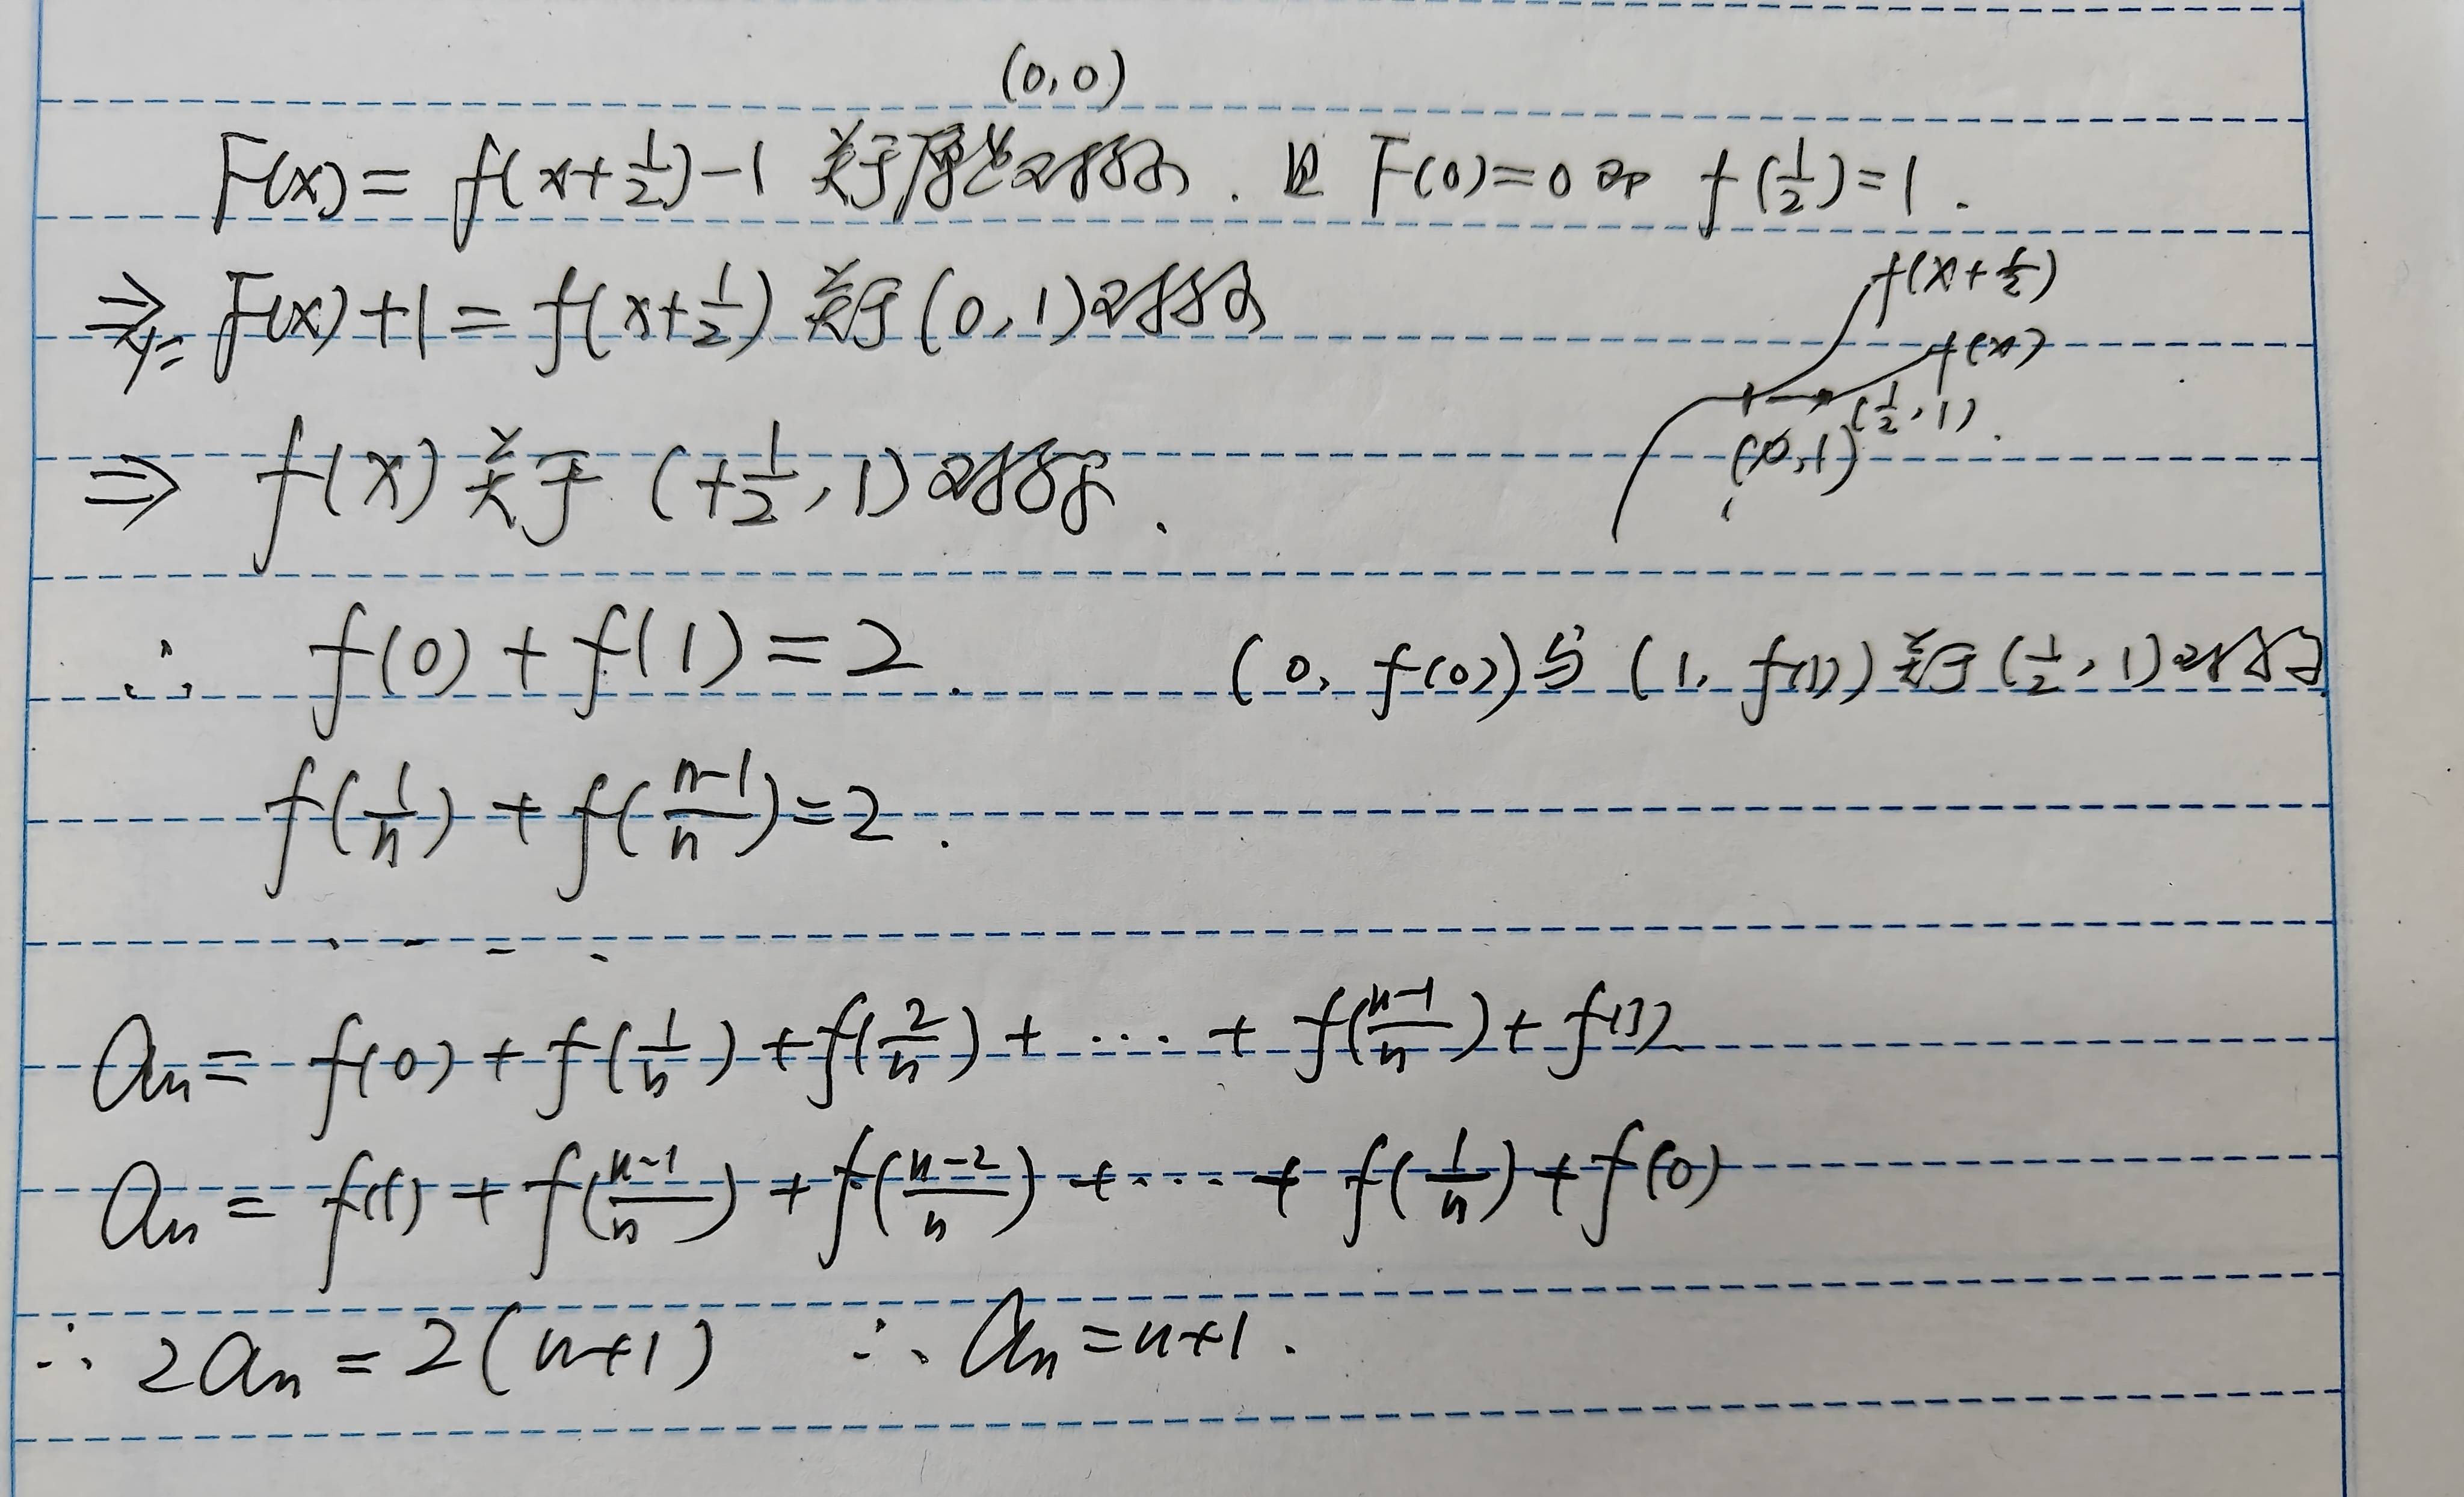 (0,0)
F(x)= f(x+1/2)-1 关于原点对称. 且 F(0)=0 即 f(1/2)=1.
⇒ y= F(x)+1= f(x+1/2) 关于(0,1)对称
f(x+1/2)
f(x)
(1/2,1).
(0,1)
⇒ f(x) 关于 (+1/2,1)对称.
∴ f(0)+f(1)=2. (0, f(0))与(1, f(1))关于(1/2,1)对称
f(1/n)+f((n-1)/n)=2.
....
an= f(0)+f(1/n)+f(2/n)+···+f((n-1)/n)+f(1)
an= f(1)+f((n-1)/n)+f((n-2)/n)+···+f(1/n)+f(0)
∴ 2an=2(n+1) ∴ an=n+1.